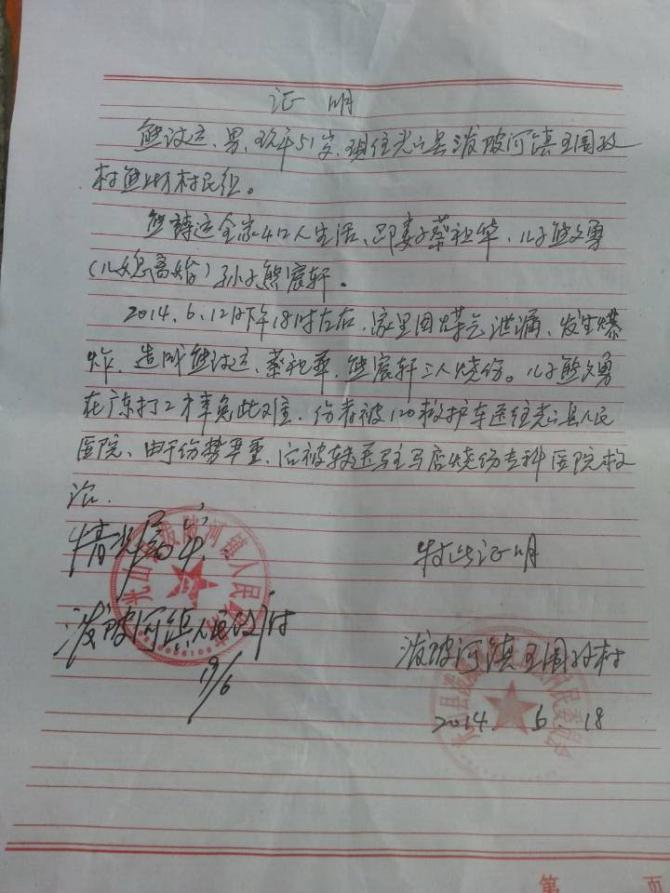 证 明
熊诗运、男、现年51岁、现住光山县泼陂河镇王围孜
村熊湾村民组。
熊诗运全家4口人生活、即妻子蔡祖华、儿子熊文勇
(儿媳离婚)孙子熊宸轩。
2014.6.12日下午18时左右、家里因煤气泄漏、发生爆
炸、造成熊诗运、蔡祖华、熊宸轩三人烧伤。儿子熊文勇
在广东打工才幸免此难、伤者被120救护车送往光山县人民
医院、由于伤势严重、后被转送驻马店烧伤专科医院救
治.
情况属实.
特此证明
泼陂河镇人民政府
19/6
泼陂河镇王围孜村
2014. 6. 18
第 页